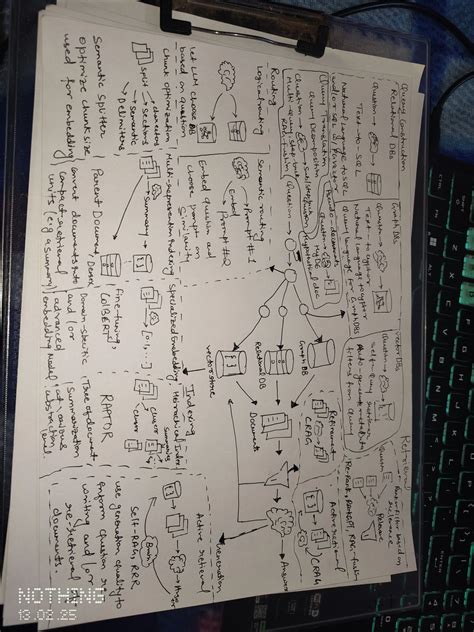 Query Construction
Relational DBs
Question
Text-to-SQL
Natural language to SQL
Graph DBs
Question
Text-to-Cypher
Natural language to Cypher
Query language for Graph DBs
Vector DBs
Question
Self-query retriever
Auto-generate metadata
filters from query
Query translation
Query Decomposition
Multi-query, step-back
Question
HyDE
Question
Routing
Logical routing
Let LLM choose DB
Semantic routing
Prompt #1
Embed
Prompt #2
Embed question and
choose prompt on
Similarity
Graph DB
Relational DB
vectorstore
Documents
Retrieval
Question
Relevance
Refinement
CRAG
Active retrieval
CRAG
Answer
Indexing
Chunk optimization
Split
characters
Sections
Semantic
Delimiters
Semantic splitter
optimize chunk size
used for embedding
Multi-representation Indexing
Summary
Parent Document,
Convert documents into
compact retrieval
units (e.g. a summary)
Specialized Embedding
fine-tuning,
ColBERT
Domain-specific
and/or
advanced
embedding Model
Hierarchical Index
Summaries
cluster
cluster
RAPTOR
Tree of document
Summarization
at various
abstraction
level
Generation
Active retrieval
Answer
Self-RAG, RRR
use generation quality to
inform question re-
writing and/or
re-retrieval of
documents
NOTHING
13.03.25